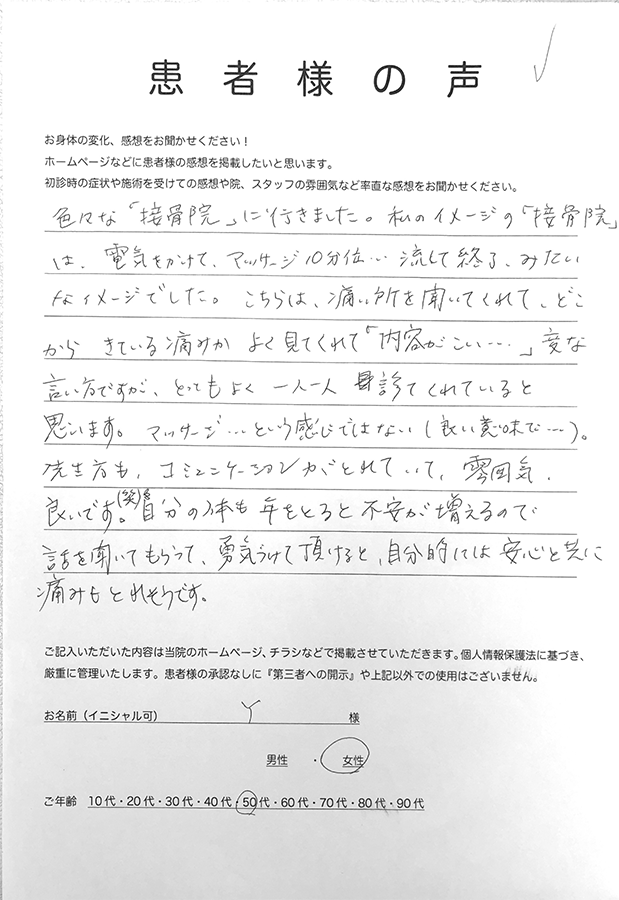 患者様の声
お身体の変化、感想をお聞かせください！
ホームページなどに患者様の感想を掲載したいと思います。
初診時の症状や施術を受けての感想や院、スタッフの雰囲気など率直な感想をお聞かせください。
色々な「接骨院」に行きました。私のイメージの「接骨院」
は、電気をかけて、マッサージ10分位…流して終了、みたい
なイメージでした。こちらは、痛い所を聞いてくれて、どこ
から きている痛みか よく見てくれて「内容がこい……」変な
言い方ですが、とってもよく 一人一人 診てくれていると
思います。マッサージ…という感じではない（良い意味で…）。
先生方も、コミュニケーションがとれていて、雰囲気、
良いです。(笑) 自分の体も 年をとると 不安が増えるので
話を聞いてもらって、勇気づけて頂けると、自分的には 安心と共に
痛みもとれそうです。
ご記入いただいた内容は当院のホームページ、チラシなどで掲載させていただきます。個人情報保護法に基づき、
厳重に管理いたします。患者様の承認なしに『第三者への開示』や上記以外での使用はございません。
お名前（イニシャル可） Y 様
男性 ・ 女性
ご年齢 10代・20代・30代・40代・50代・60代・70代・80代・90代